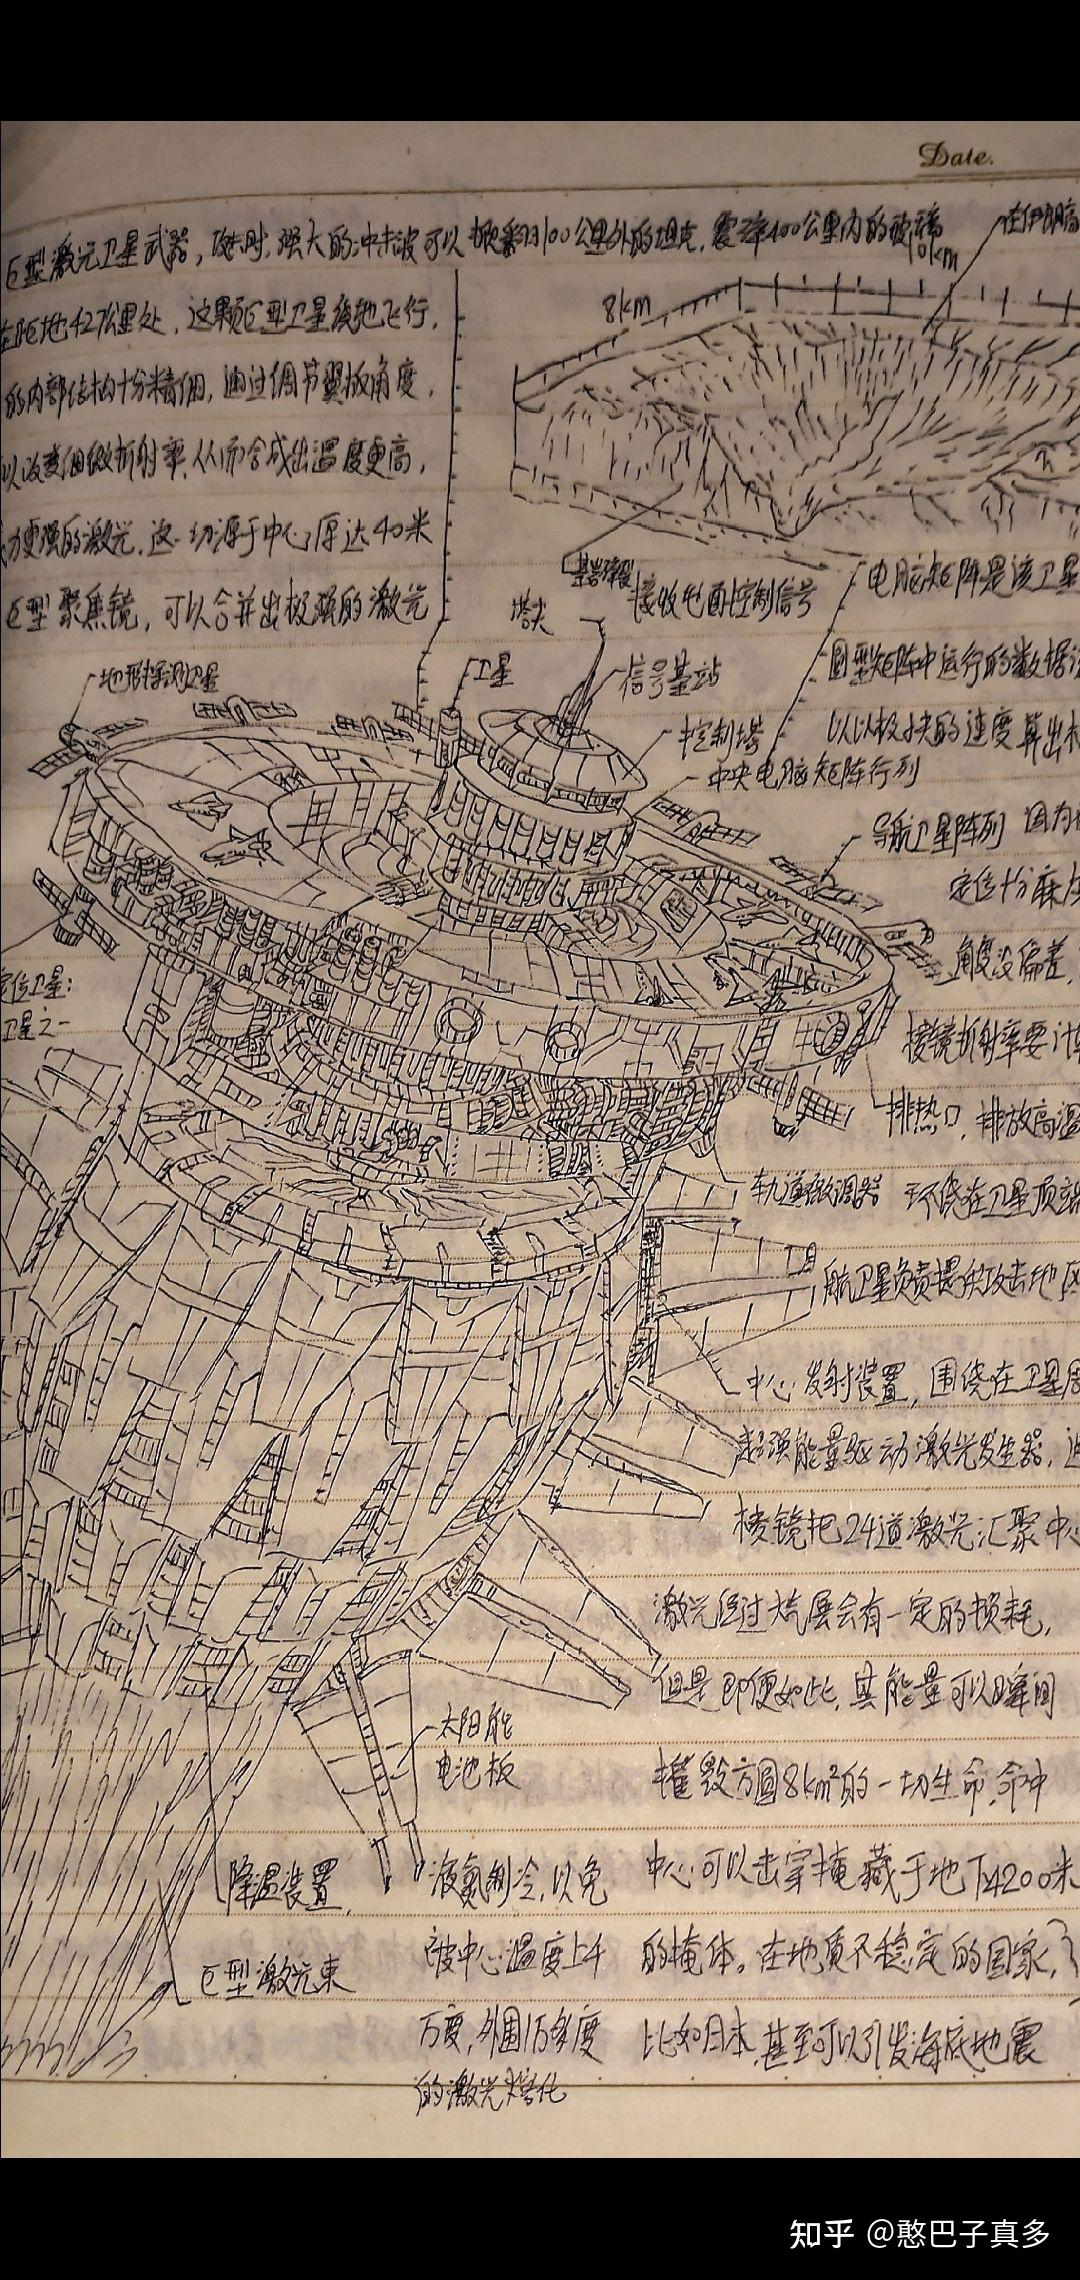 Date.
巨型激光卫星武器，攻击时，强大的冲击波可以掀翻100公里外的坦克，震碎400公里内的玻璃
在距地427公里处，这颗巨型卫星绕地飞行，
的内部结构十分精细，通过调节翼板角度，
以改变细微折射率，从而合成出温度更高，
力更强的激光，这一切源于中心厚达40米
巨型聚焦镜，可以合并出极强的激光
8km
10km
在伊朗高
基岩碎裂
塔尖
接收地面控制信号
电脑矩阵是该卫星
圆型矩阵中运行的数据
以以极快的速度算出
地形探测卫星
卫星
信号基站
控制塔
中央电脑矩阵行列
导航卫星阵列 因为
定位十分麻
角度没偏差，
棱镜折射率要计
定位卫星：
卫星之一
排热口，排放高温
轨道微调器 环绕在卫星顶端
航卫星负责提供攻击地区
中心发射装置，围绕在卫星
超强能量驱动激光发生器，
棱镜把24道激光汇聚中心
激光经过大气层会有一定的损耗，
但是即便如此，其能量可以瞬间
摧毁方圆8km²的一切生命，命中
中心可以击穿掩藏于地下4200米
的掩体。在地质不稳定的国家，
比如日本，甚至可以引发海底地震
太阳能
电池板
降温装置，
液氮制冷，以免
被中心温度上千
万度，外围1万多度
的激光熔化
巨型激光束
知乎 @憨巴子真多